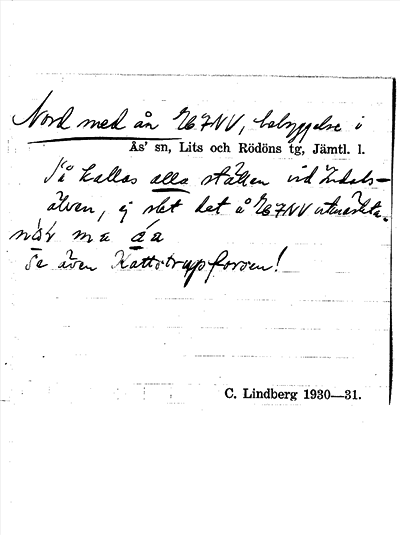 Nord med ån 1/67NV, bebyggelse i
Ås' sn, Lits och Rödöns tg, Jämtl. l.
Så kallas alla ställen vid Indals-
älven, ej blot det å 1/67NV utmärkta.
ma
Se även Kattstrupforsen!
C. Lindberg 1930—31.